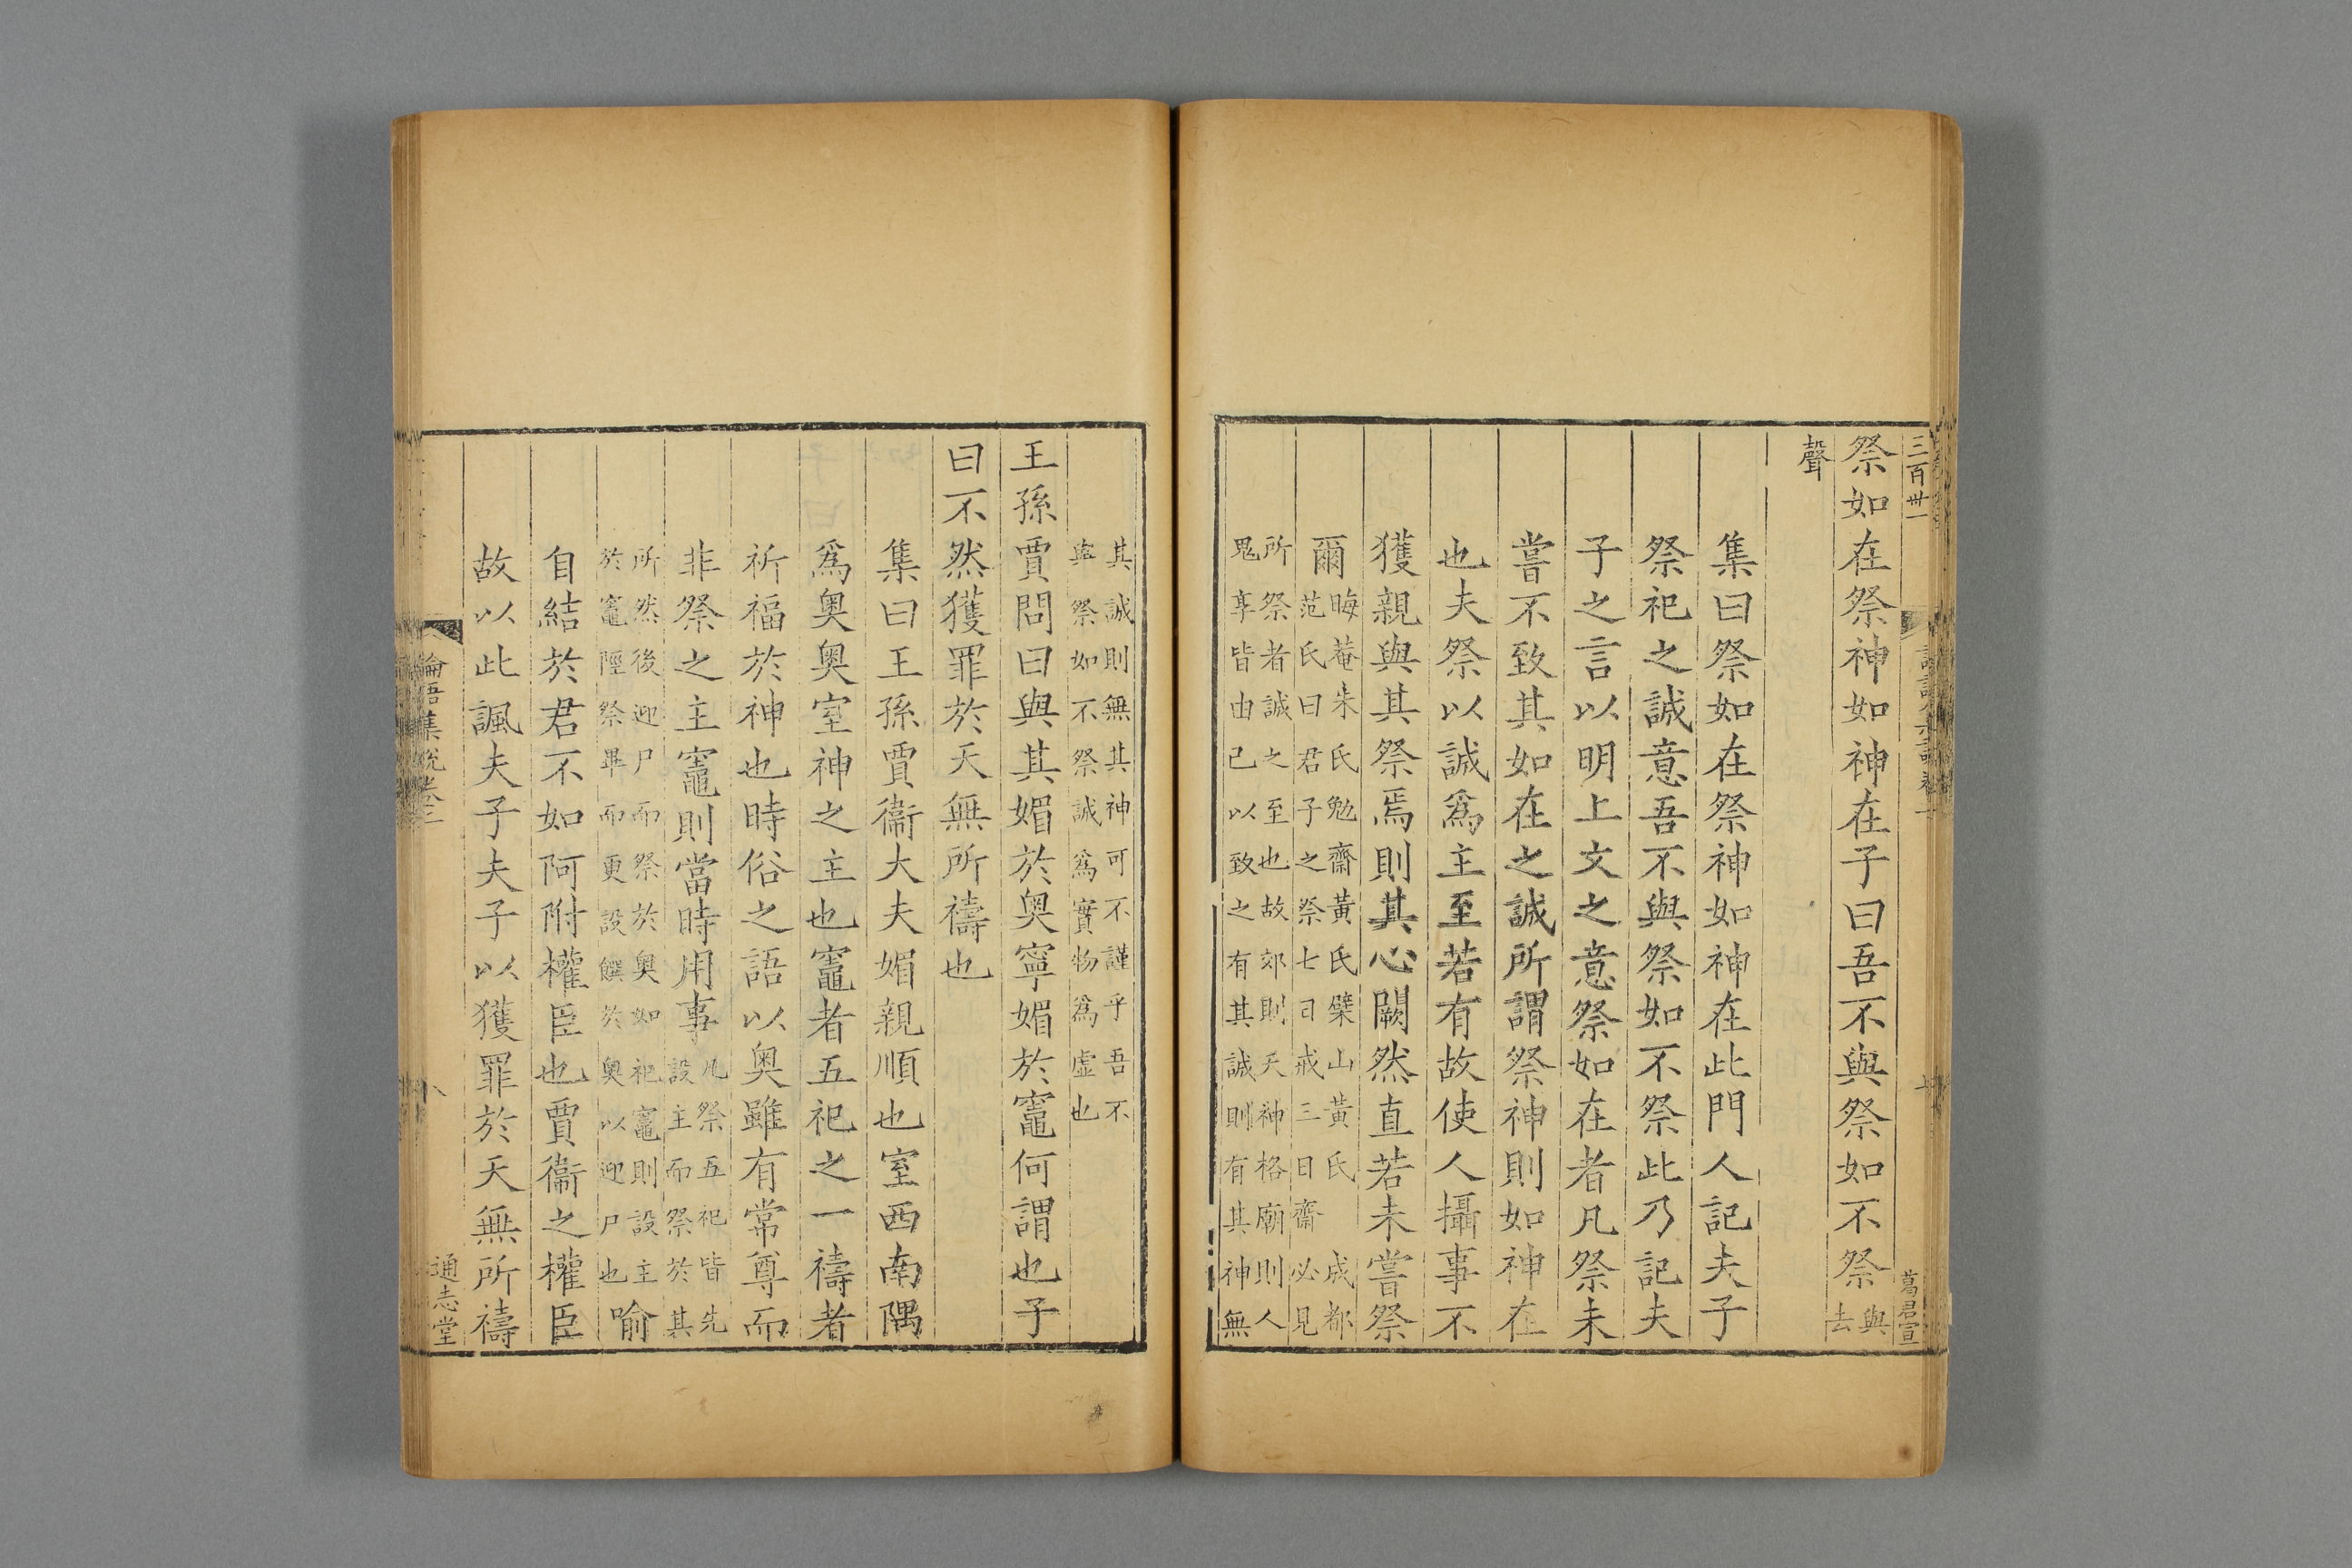 三百卅一
葛君宣
祭如在祭神如神在子曰吾不與祭如不祭與去
聲
集曰祭如在祭神如神在此門人記夫子
祭祀之誠意吾不與祭如不祭此乃記夫
子之言以明上文之意祭如在者凡祭未
嘗不致其如在之誠所謂祭神則如神在
也夫祭以誠爲主至若有故使人攝事不
獲親與其祭焉則其心闕然直若未嘗祭
爾晦菴朱氏勉齋黃氏檗山黃氏成都
范氏曰君子之祭七日戒三日齋必見
所祭者誠之至也故郊則天神格廟則人
鬼享皆由已以致之有其誠則有其神無
其誠則無其神可不謹乎吾不
與祭如不祭誠爲實物爲虛也
王孫賈問曰與其媚於奥寧媚於竈何謂也子
曰不然獲罪於天無所禱也
集曰王孫賈衞大夫媚親順也室西南隅
爲奥奥室神之主也竈者五祀之一禱者
祈福於神也時俗之語以奥雖有常尊而
非祭之主竈則當時用事凡祭五祀皆先
設主而祭於其
所然後迎尸而祭於奥如祀竈則設主
於竈陘祭畢而更設饌於奥以迎尸也喻
自結於君不如阿附權臣也賈衞之權臣
故以此諷夫子夫子以獲罪於天無所禱
論語集說卷二
八
通志堂